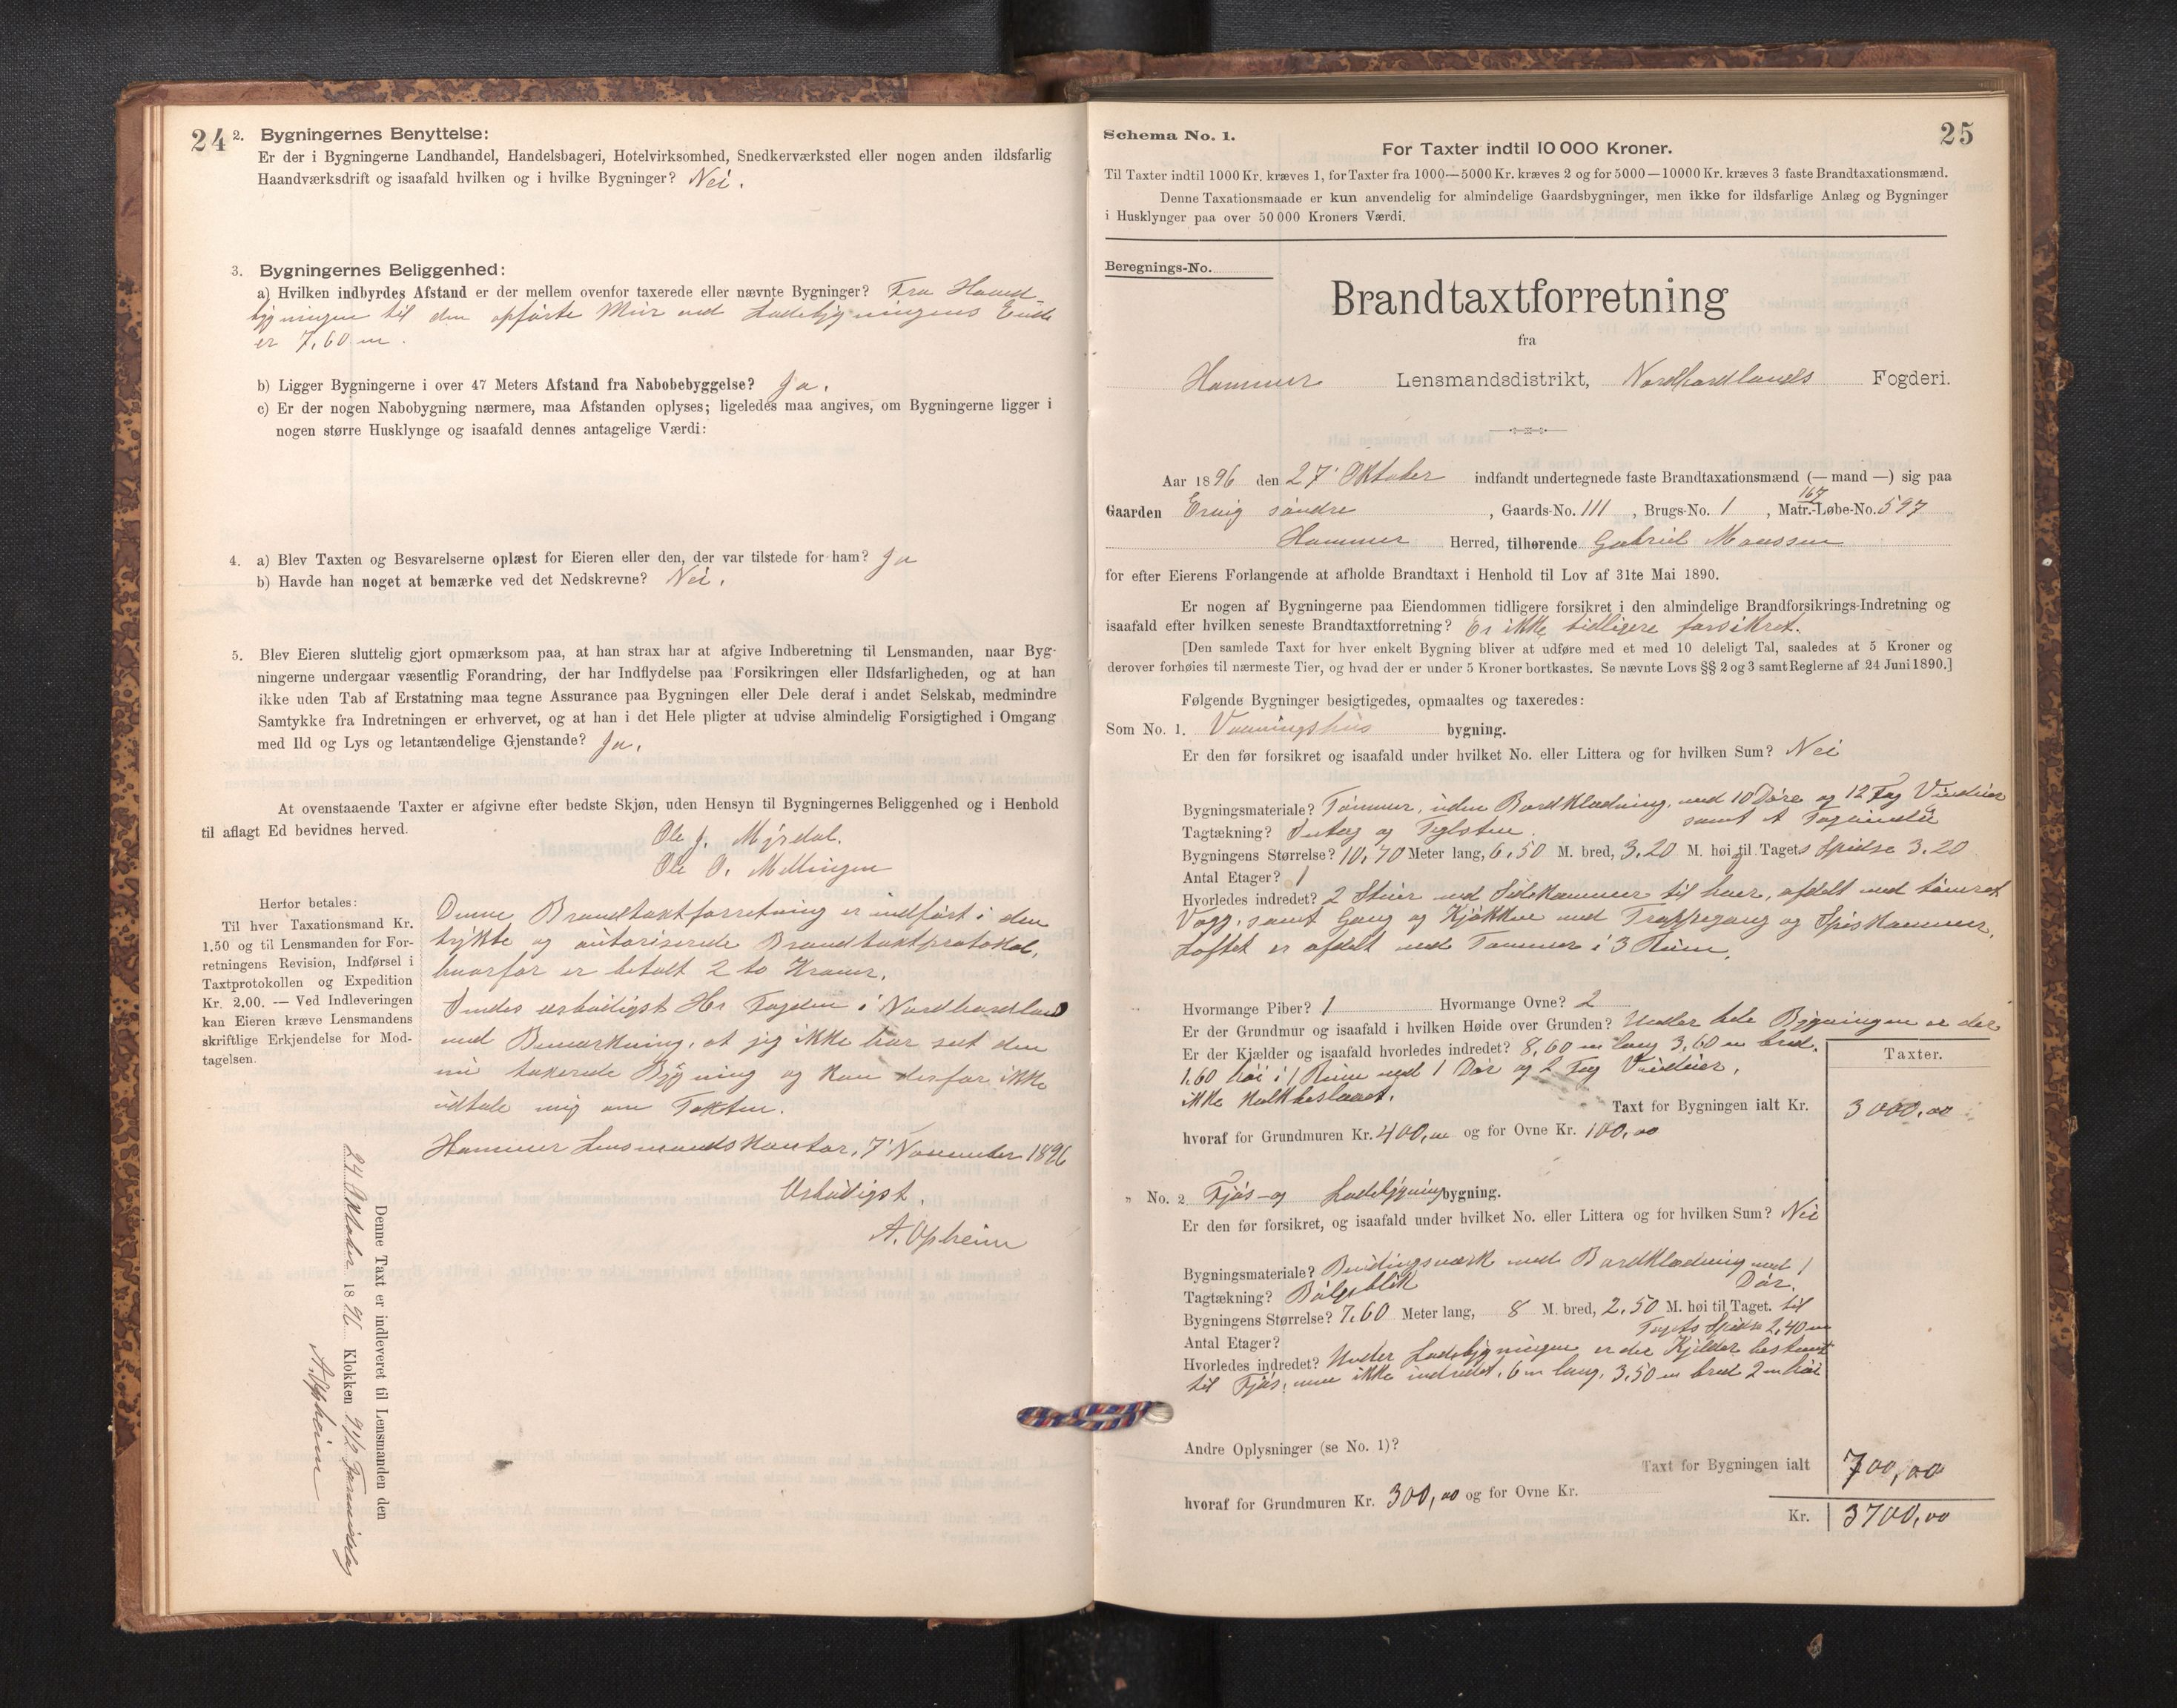 24
2. Bygningernes Benyttelse:
Er der i Bygningerne Landhandel, Handelsbageri, Hotelvirksomhed, Snedkerværksted eller nogen anden ildsfarlig
Haandværksdrift og isaafald hvilken og i hvilke Bygninger? Nei.
3. Bygningernes Beliggenhed:
a) Hvilken indbyrdes Afstand er der mellem ovenfor taxerede eller nævnte Bygninger? Fra Hoved-
bygningen til den opførte Mur ved Ladebygningens Ende
er 7,60 m.
b) Ligger Bygningerne i over 47 Meters Afstand fra Nabobebyggelse? Ja.
c) Er der nogen Nabobygning nærmere, maa Afstanden oplyses; ligeledes maa angives, om Bygningerne ligger i
nogen større Husklynge og isaafald dennes antagelige Værdi:
4. a) Blev Taxten og Besvarelserne oplæst for Eieren eller den, der var tilstede for ham? Ja
b) Havde han noget at bemærke ved det Nedskrevne? Nei.
5. Blev Eieren sluttelig gjort opmærksom paa, at han strax har at afgive Indberetning til Lensmanden, naar Byg-
ningerne undergaar væsentlig Forandring, der har Indflydelse paa Forsikringen eller Ildsfarligheden, og at han
ikke uden Tab af Erstatning maa tegne Assurance paa Bygningen eller Dele deraf i andet Selskab, medmindre
Samtykke fra Indretningen er erhvervet, og at han i det Hele pligter at udvise almindelig Forsigtighed i Omgang
med Ild og Lys og letantændelige Gjenstande? Ja.
At ovenstaaende Taxter er afgivne efter bedste Skjøn, uden Hensyn til Bygningernes Beliggenhed og i Henhold
til aflagt Ed bevidnes herved.
Ole J. Myrdal.
Ole O. Mellingen
Herfor betales:
Til hver Taxationsmand Kr.
1.50 og til Lensmanden for For-
retningens Revision, Indførsel i
Taxtprotokollen og Expedition
Kr. 2.00. — Ved Indleveringen
kan Eieren kræve Lensmandens
skriftlige Erkjendelse for Mod-
tagelsen.
Denne Brandtaktforretning er indført i den
trykte og autoriserede Brandtaktprotokol,
hvorfor er betalt 2 to Kroner.
Sendes ærbødigst Hr Fogden i Nordhordland
med Bemærkning, at jeg ikke har seet den
nu takerede Bygning og kan derfor ikke
udtale mig om Takten.
Hammer Lensmandskontor, 7' November 1896
Ærbødigst.
A. Opheim
Denne Taxt er indleveret til Lensmanden den
24 Oktober 1896 Klokken 9 1/2 Formiddag
A. Opheim
25
Schema No. 1.
For Taxter indtil 10 000 Kroner.
Til Taxter indtil 1000 Kr. kræves 1, for Taxter fra 1000—5000 Kr. kræves 2 og for 5000—10000 Kr. kræves 3 faste Brandtaxationsmænd.
Denne Taxationsmaade er kun anvendelig for almindelige Gaardsbygninger, men ikke for ildsfarlige Anlæg og Bygninger
i Husklynger paa over 50 000 Kroners Værdi.
Beregnings-No.
Brandtaxtforretning
fra
Hammer Lensmandsdistrikt, Nordhordlands Fogderi.
Aar 1896 den 27' Oktober indfandt undertegnede faste Brandtaxationsmænd (— mand —) sig paa
Gaarden Ervig søndre, Gaards-No. 111, Brugs-No. 1, Matr.-Løbe-No. 167 597
Hammer Herred, tilhørende Gabriel Monssen
for efter Eierens Forlangende at afholde Brandtaxt i Henhold til Lov af 31te Mai 1890.
Er nogen af Bygningerne paa Eiendommen tidligere forsikret i den almindelige Brandforsikrings-Indretning og
isaafald efter hvilken seneste Brandtaxtforretning? Er ikke tidligere forsikret.
[Den samlede Taxt for hver enkelt Bygning bliver at udføre med et med 10 deleligt Tal, saaledes at 5 Kroner og
derover forhøies til nærmeste Tier, og hvad der er under 5 Kroner bortkastes. Se nævnte Lovs §§ 2 og 3 samt Reglerne af 24 Juni 1890.]
Følgende Bygninger besigtigedes, opmaaltes og taxeredes:
Som No. 1. Vaaningshus bygning.
Er den før forsikret og isaafald under hvilket No. eller Littera og for hvilken Sum? Nei
Bygningsmateriale? Tømmer, uden Bordklædning, med 10 Døre og 12 Fag Vinduer
samt Tagvindu
Tagtækning? Sutag og Teglsten.
Bygningens Størrelse? 10,70 Meter lang, 6,50 M. bred, 3,20 M. høi, til Tagets Spidse 3.20
Antal Etager? 1
Hvorledes indredet? 2 Stuer med Sidekammer til hver, afdelt med tømret
Væg, samt Gang og Kjøkken med Trappegang og Spiskammer,
Loftet er afdelt med Tømmer i 3 Rum.
Hvormange Piber? 1 Hvormange Ovne? 2
Er der Grundmur og isaafald i hvilken Høide over Grunden? Under hele Bygningen er der
Er der Kjælder og isaafald hvorledes indredet? 8,60 m lang 3,60 m bred.
1.60 høi i 1 Rum med 1 Dør og 2 Fag Vinduer,
ikke Kalkbeslaaet.
Taxter.
Taxt for Bygningen ialt Kr. 3000,00
hvoraf for Grundmuren Kr. 400,00 og for Ovne Kr. 100,00
" No. 2 Fjøs- og Ladebygning bygning.
Er den før forsikret, og isaafald under hvilket No. eller Littera og for hvilken Sum? Nei
Bygningsmateriale? Bindingsværk med Bordklædning med 1
Dør.
Tagtækning? Bølgeblik
Bygningens Størrelse? 7,60 Meter lang, 8 M. bred, 2,50 M. høi til Taget. til
Tagets Spidse 2,40 m
Antal Etager?
Hvorledes indredet? Under Ladebygningen er der Kjelder bestemt
til Fjøs, men ikke indredet, 6 m lang, 3,50 m bred 2 m høi
Andre Oplysninger (se No. 1)?
Taxt for Bygningen ialt 700,00
hvoraf for Grundmuren Kr. 300,00 og for Ovne Kr.
Kr. 3700,00